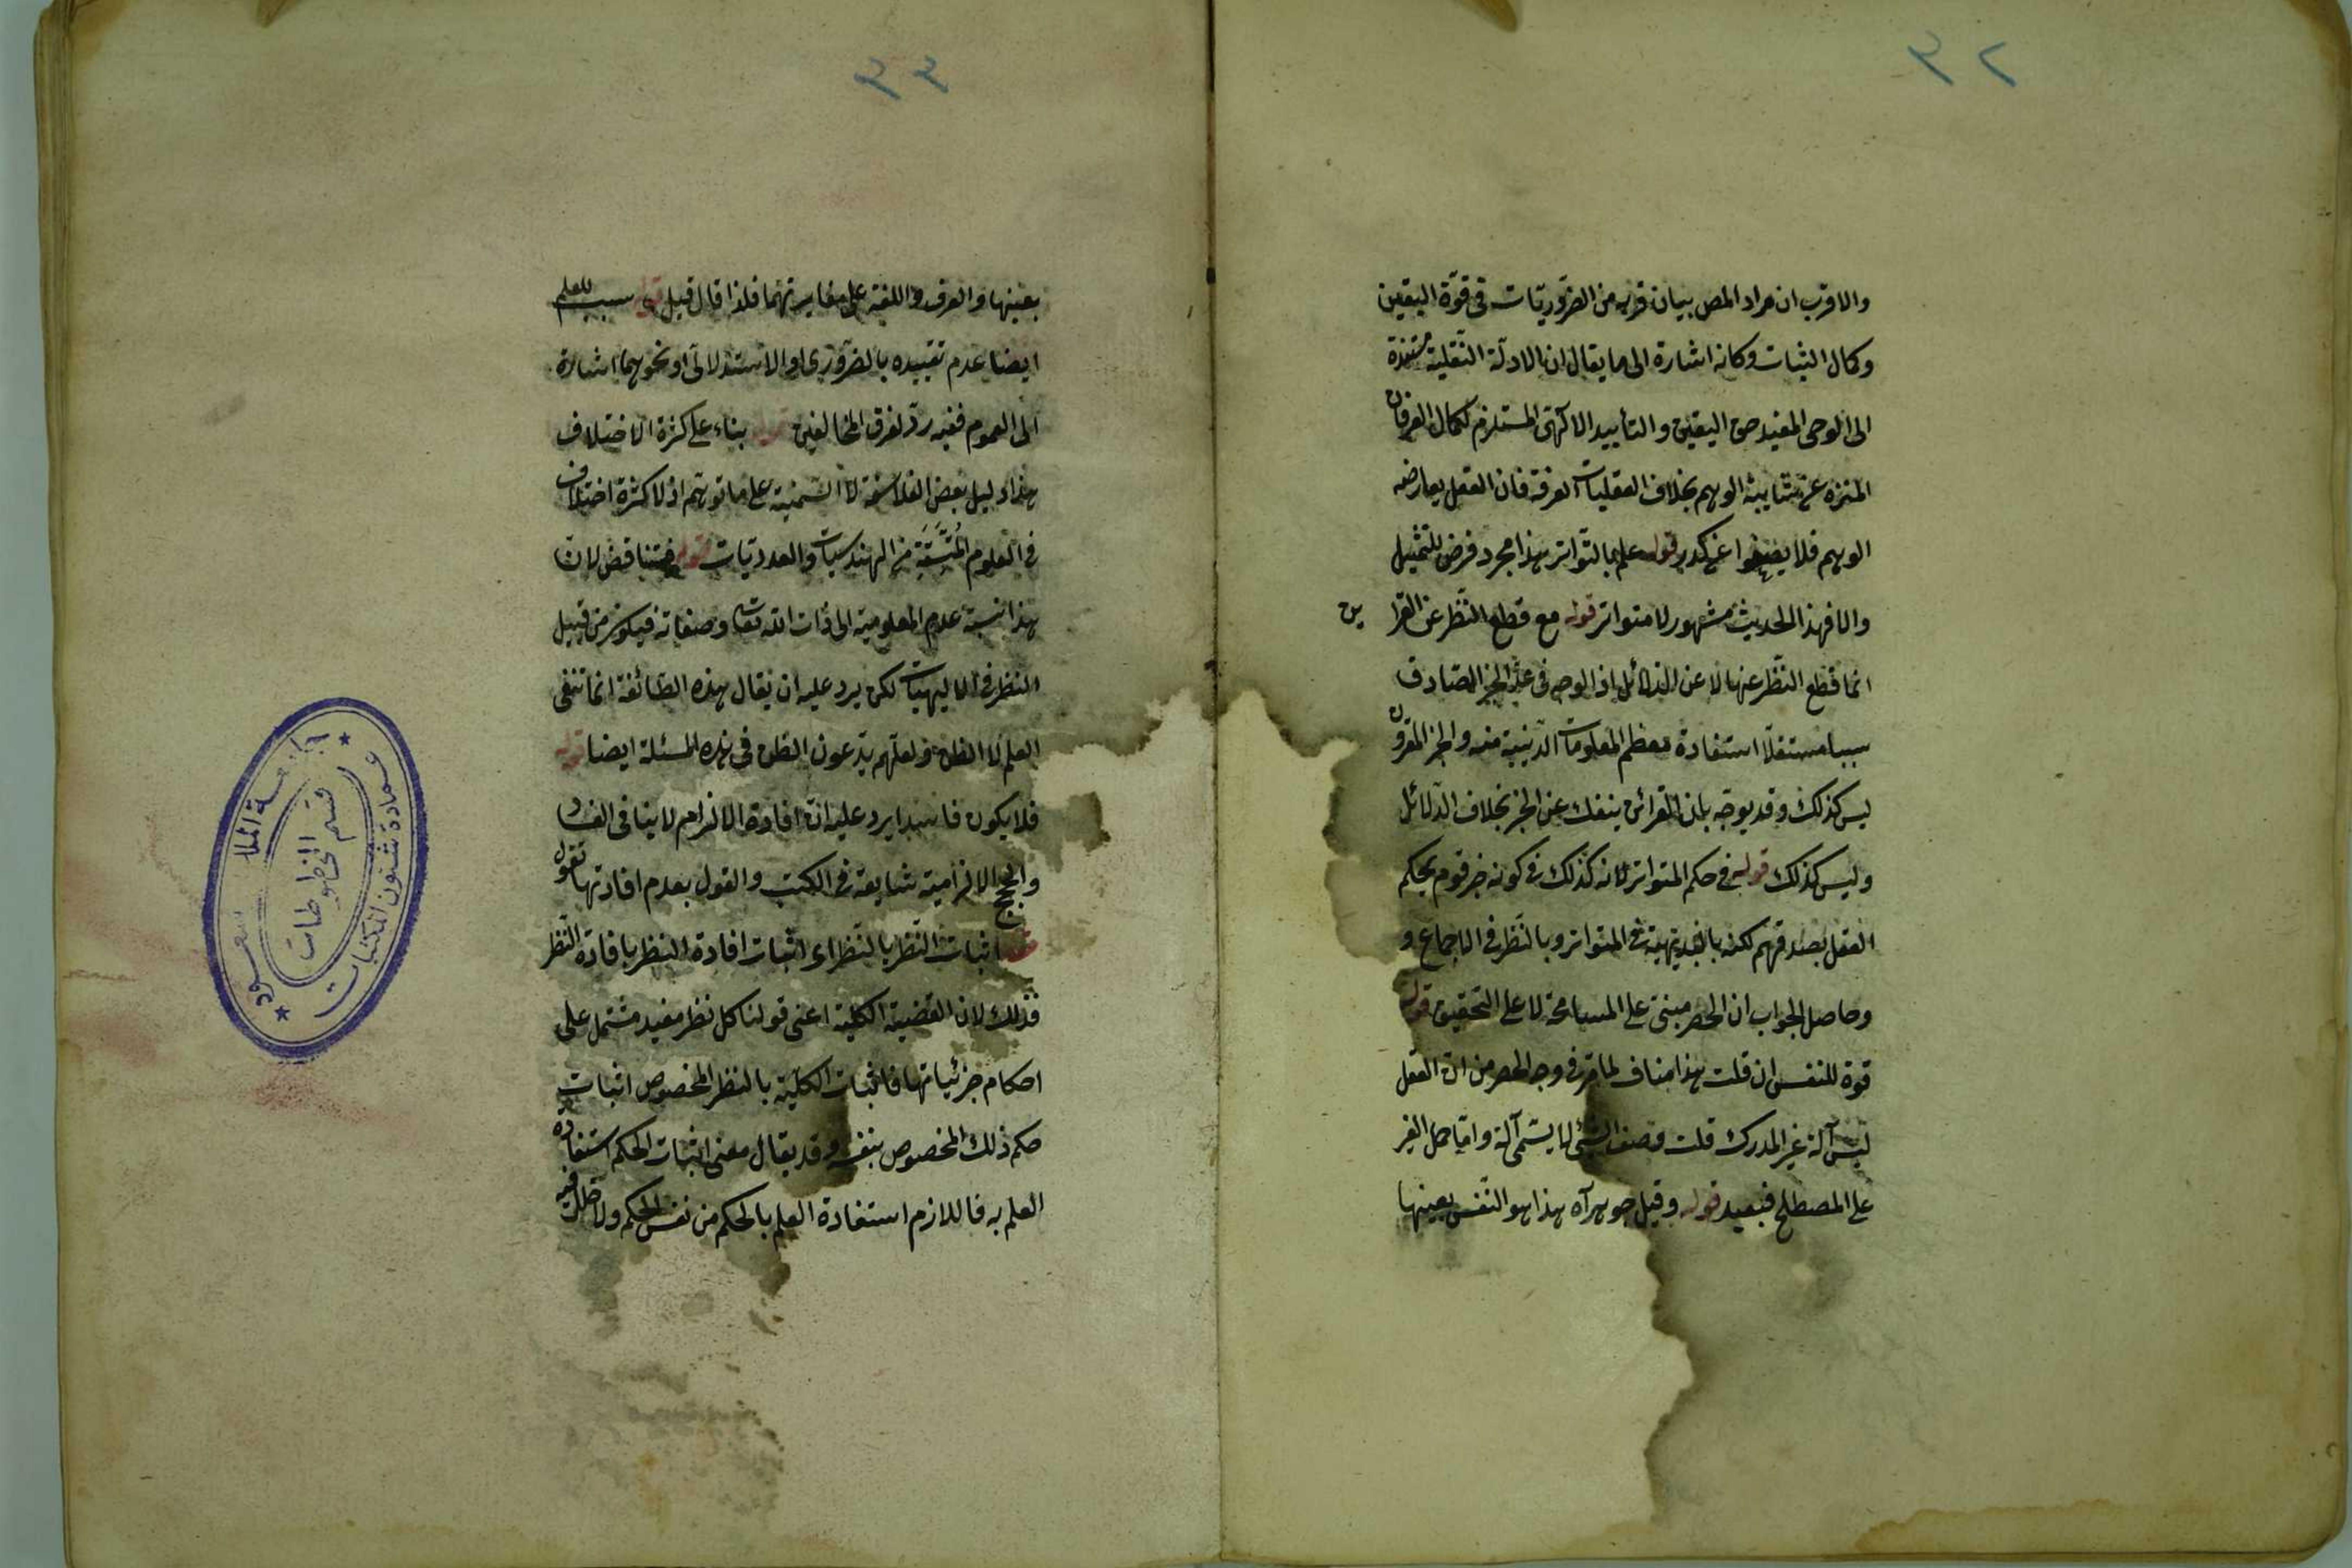 ٣٢
والاقرب ان مراد المص بيان قربه من الضروريات في قوة اليقين
وكمال الثبات وكانه اشارة الى ما يقال ان الادلة النقلية مستندة
الى الوحي المفيد حق اليقين والتأييد الالهي المستلزم لكمال العرفان
المنزه عن شايبة الوهم بخلاف العقليات الصرفة فان العقل يعارضه
الوهم فلا يصفو عن كدر قوله علم بالتواتر هذا مجرد فرض للتمثيل
والا فهذا الحديث مشهور لا متواتر قوله مع قطع النظر عن القراين
انما قطع النظر عنها لا عن الدلائل اذ الوجه في عد الخبر الصادق
سببا مستقلا استفادة معظم المعلومات الدينية منه والخبر المقرون
ليس كذلك وقد يوجه بان القرائن ينفك عن الخبر بخلاف الدلائل
وليس كذلك قوله في حكم المتواتر لانه كذلك في كونه خبر قوم يحكم
العقل بصدقهم لكنه بالبديهية في المتواتر وبالنظر في الاجماع و
وحاصل الجواب ان الحصر مبنى على المسامحة لا على التحقيق قوله
قوة للنفس ان قلت هذا مناف لما مر في وجه الحصر من ان العقل
ليس آلة غير المدرك قلت وصف الشئ لا يسمى آلة واما حمل الغير
على المصطلح فبعيد قوله وقيل جوهر آه هذا هو النفس بعينها
٣٣
بعينها والعرف واللغة على مغايرتهما فلذا قال قيل قوله سبب للعلم
ايضا عدم تقييده بالضرورى او الاستدلالى او نحوهما اشارة
الى العموم ففيه رد لفرق المخالفين قوله بناء على كثرة الاختلاف
هذا دليل بعض الفلاسفة لا السمنية على ما توهم اذ لا كثرة اختلاف
في العلوم المتسقة من الهندسيات والعدديات قوله فتناقض لان
هذا نسبة عدم المعلومية الى ذات الله تعالى وصفاته فيكون من قبيل
النظر في الالهيات لكن يرد عليه ان يقال هذه الطائفة انما تنفى
العلم لا الظن ولعلهم يدعون الظن في هذه المسئلة ايضا قوله
فلا يكون فاسدا يرد عليه ان افادة الالزام لا ينافى الفساد
والحجج الالزامية شايعة في الكتب والقول بعدم افادتها تقول
قوله اثبات النظر بالنظر اى اثبات افادة النظر بافادة النظر
فذلك لان القضية الكلية اعنى قولنا كل نظر مفيد مشتمل على
احكام جزئياتها فاثبات الكلية بالنظر المخصوص اثبات
حكم ذلك المخصوص بنفسه وقد يقال معنى اثبات الحكم استفادة
العلم به فاللازم استفادة العلم بالحكم من نفس الحكم ولا خلل فيه
جامعة الملك سعود
عمادة شئون المكتبات
قسم المخطوطات